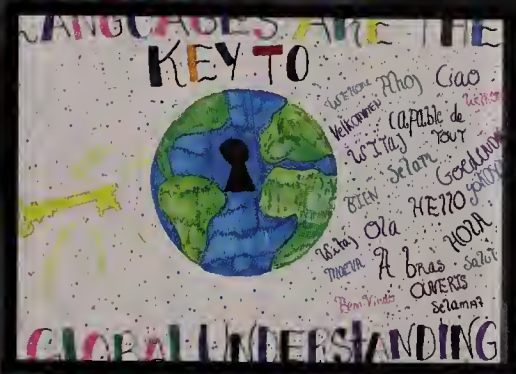 LANGUAGES ARE THE
KEY TO
Welcome Ahoj Ciao
Velkommen Capable de
TOUT
WITAJ
Selam
BIEN
HELLO
Witaj Ola HOLA
A bras Salut
OUVERTS
Bem-Vindo Selamat
GLOBAL UNDERSTANDING